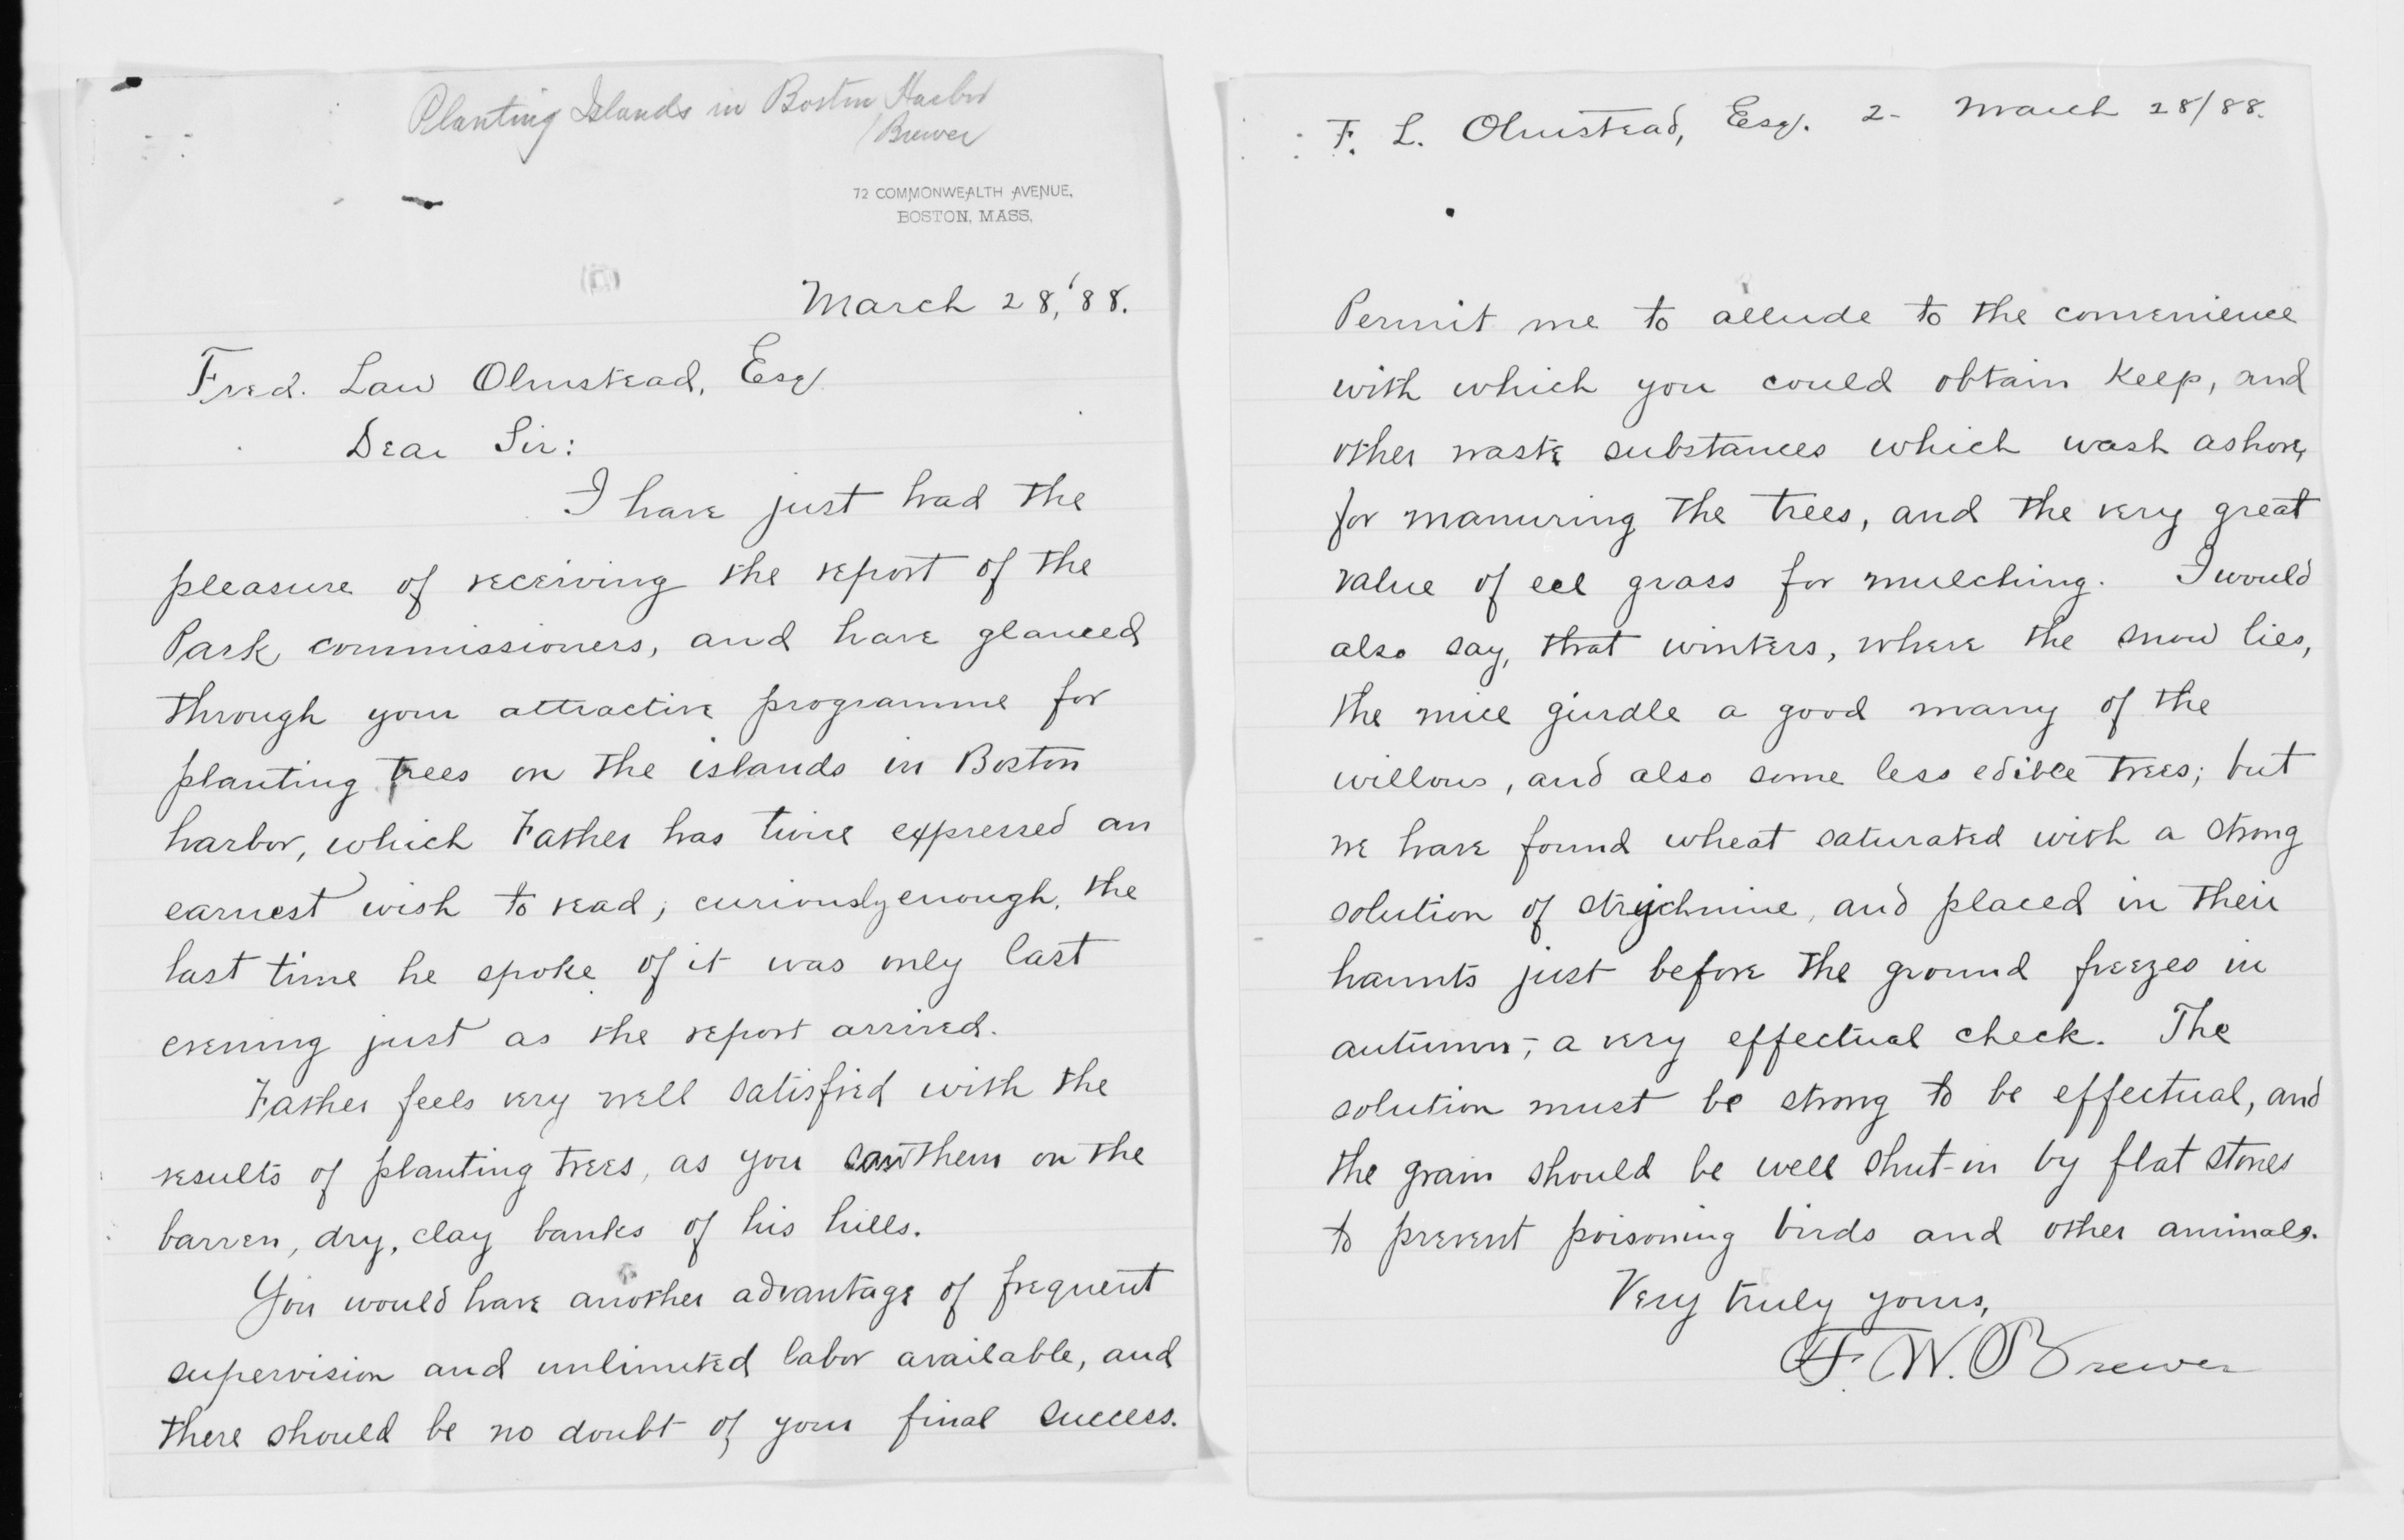 Planting Islands in Boston Harbor
Brewer
72 COMMONWEALTH AVENUE,
BOSTON, MASS.
March 28, '88.
Fred. Law Olmstead, Esq.
Dear Sir:
I have just had the
pleasure of receiving the report of the
Park commissioners, and have glanced
through your attractive programme for
planting trees on the islands in Boston
harbor, which Father has twice expressed an
earnest wish to read; curiously enough, the
last time he spoke of it was only last
evening just as the report arrived.
Father feels very well satisfied with the
results of planting trees, as you saw them on the
barren, dry, clay banks of his hills.
You would have another advantage of frequent
supervision and unlimited labor available, and
there should be no doubt of your final success.
F. L. Olmstead, Esq. 2- March 28/88.
Permit me to allude to the convenience
with which you could obtain kelp, and
other waste substances which wash ashore,
for manuring the trees, and the very great
value of eel grass for mulching. I would
also say, that winters, where the snow lies,
the mice girdle a good many of the
willows, and also some less edible trees; but
we have found wheat saturated with a strong
solution of strychnine, and placed in their
haunts just before the ground freezes in
autumn,- a very effectual check. The
solution must be strong to be effectual, and
the grain should be well shut-in by flat stones
to prevent poisoning birds and other animals.
Very truly yours,
F. W. Brewer